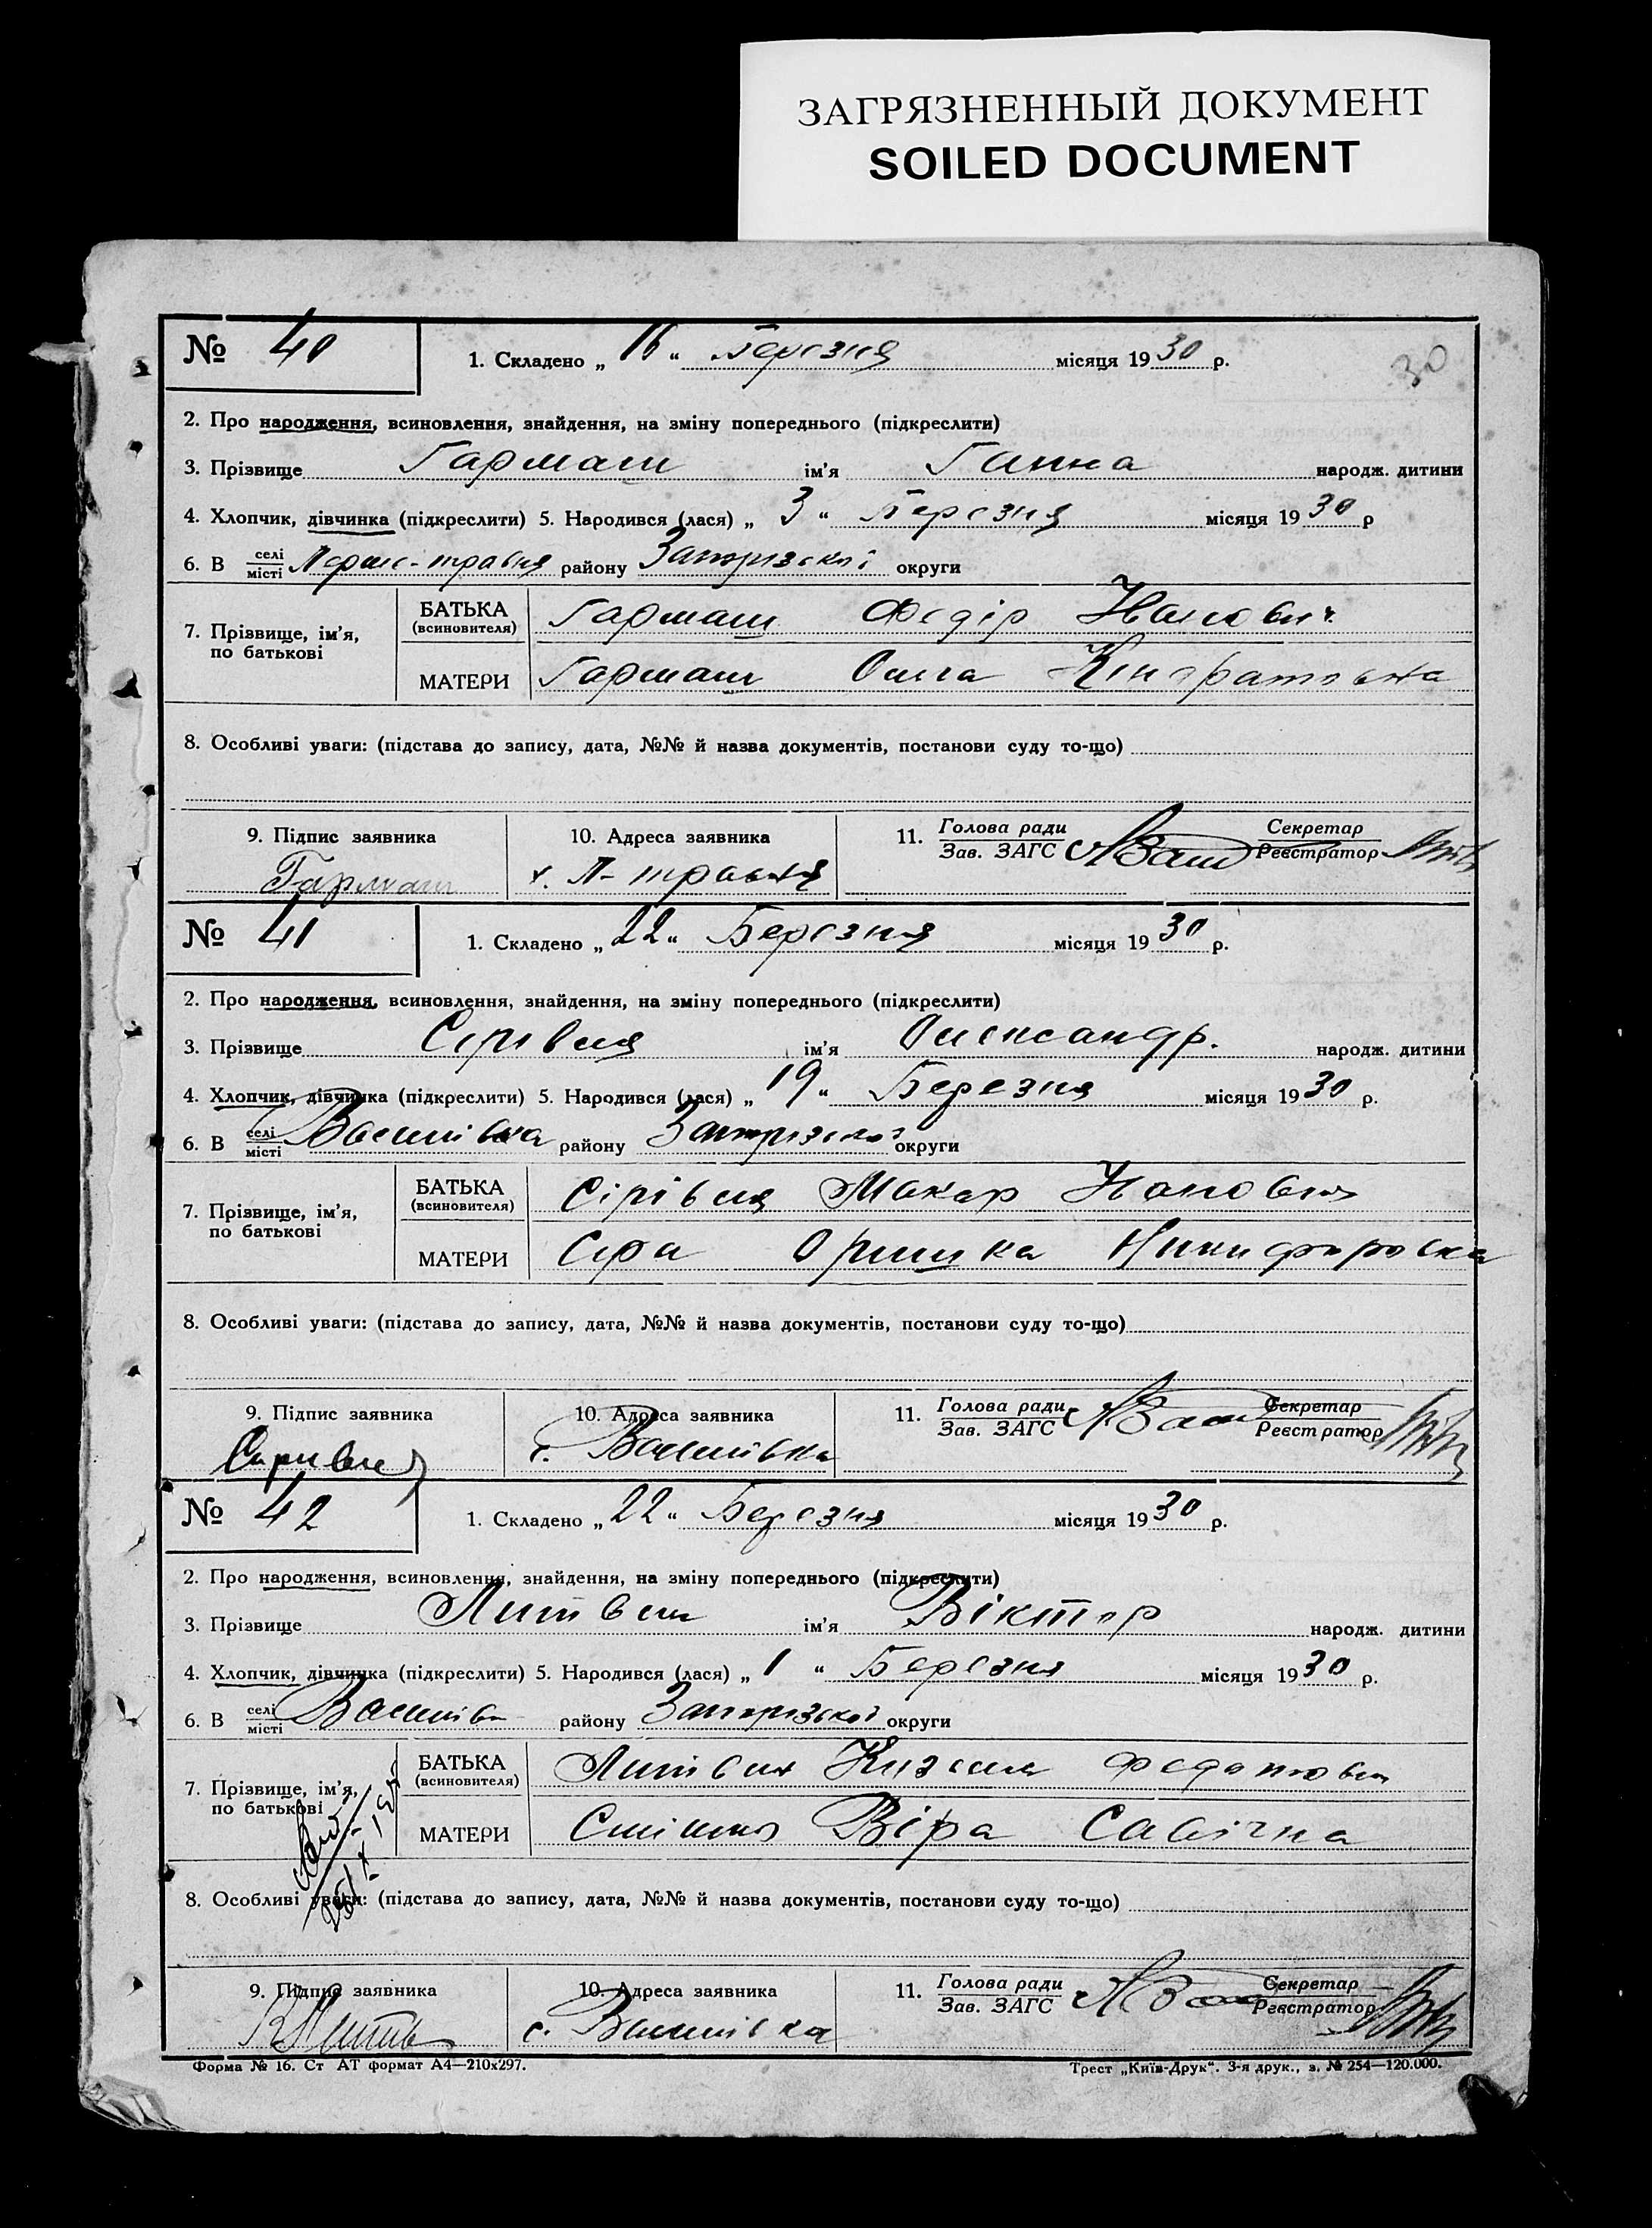 ЗАГРЯЗНЕННЫЙ ДОКУМЕНТ
SOILED DOCUMENT
30
№ 40 1. Складено „16“ Березня місяця 1930 р.
2. Про народження, всиновлення, знайдення, на зміну попереднього (підкреслити)
3. Прізвище Гармаш ім'я Ганна народж. дитини
4. Хлопчик, дівчинка (підкреслити) 5. Народився (лася) „3“ Березня місяця 1930 р
6. В селі місті Перше-травня району Запорізської округи
7. Прізвище, ім'я, по батькові
БАТЬКА (всиновителя) Гармаш Федір
МАТЕРИ Гармаш Ольга Кіндратовна
8. Особливі уваги: (підстава до запису, дата, №№ й назва документів, постанови суду то-що)
9. Підпис заявника 10. Адреса заявника 11. Голова ради Зав. ЗАГС Секретар Реєстратор
Гармаш х. П-травня
№ 41 1. Складено „22“ Березня місяця 1930 р.
2. Про народження, всиновлення, знайдення, на зміну попереднього (підкреслити)
3. Прізвище ім'я Олександр. народж. дитини
4. Хлопчик, дівчинка (підкреслити) 5. Народився (лася) „19“ Березня місяця 1930 р.
6. В селі місті Василівка району Запорізської округи
7. Прізвище, ім'я, по батькові
БАТЬКА (всиновителя) Макар
МАТЕРИ Сіра Оришка Никифоровна
8. Особливі уваги: (підстава до запису, дата, №№ й назва документів, постанови суду то-що)
9. Підпис заявника 10. Адреса заявника 11. Голова ради Зав. ЗАГС Секретар Реєстратор
с. Василівка
№ 42 1. Складено „22“ Березня місяця 1930 р.
2. Про народження, всиновлення, знайдення, на зміну попереднього (підкреслити)
3. Прізвище Литвин ім'я Віктор народж. дитини
4. Хлопчик, дівчинка (підкреслити) 5. Народився (лася) „1“ Березня місяця 1930 р.
6. В селі місті Василівка району Запорізської округи
7. Прізвище, ім'я, по батькові
БАТЬКА (всиновителя) Литвин
МАТЕРИ Віра Савічна
8. Особливі уваги: (підстава до запису, дата, №№ й назва документів, постанови суду то-що)
9. Підпис заявника 10. Адреса заявника 11. Голова ради Зав. ЗАГС Секретар Реєстратор
с. Василівка
Форма № 16. Ст АТ формат А4—210x297. Трест „Київ-Друк“. 3-я друк., з. № 254—120.000.